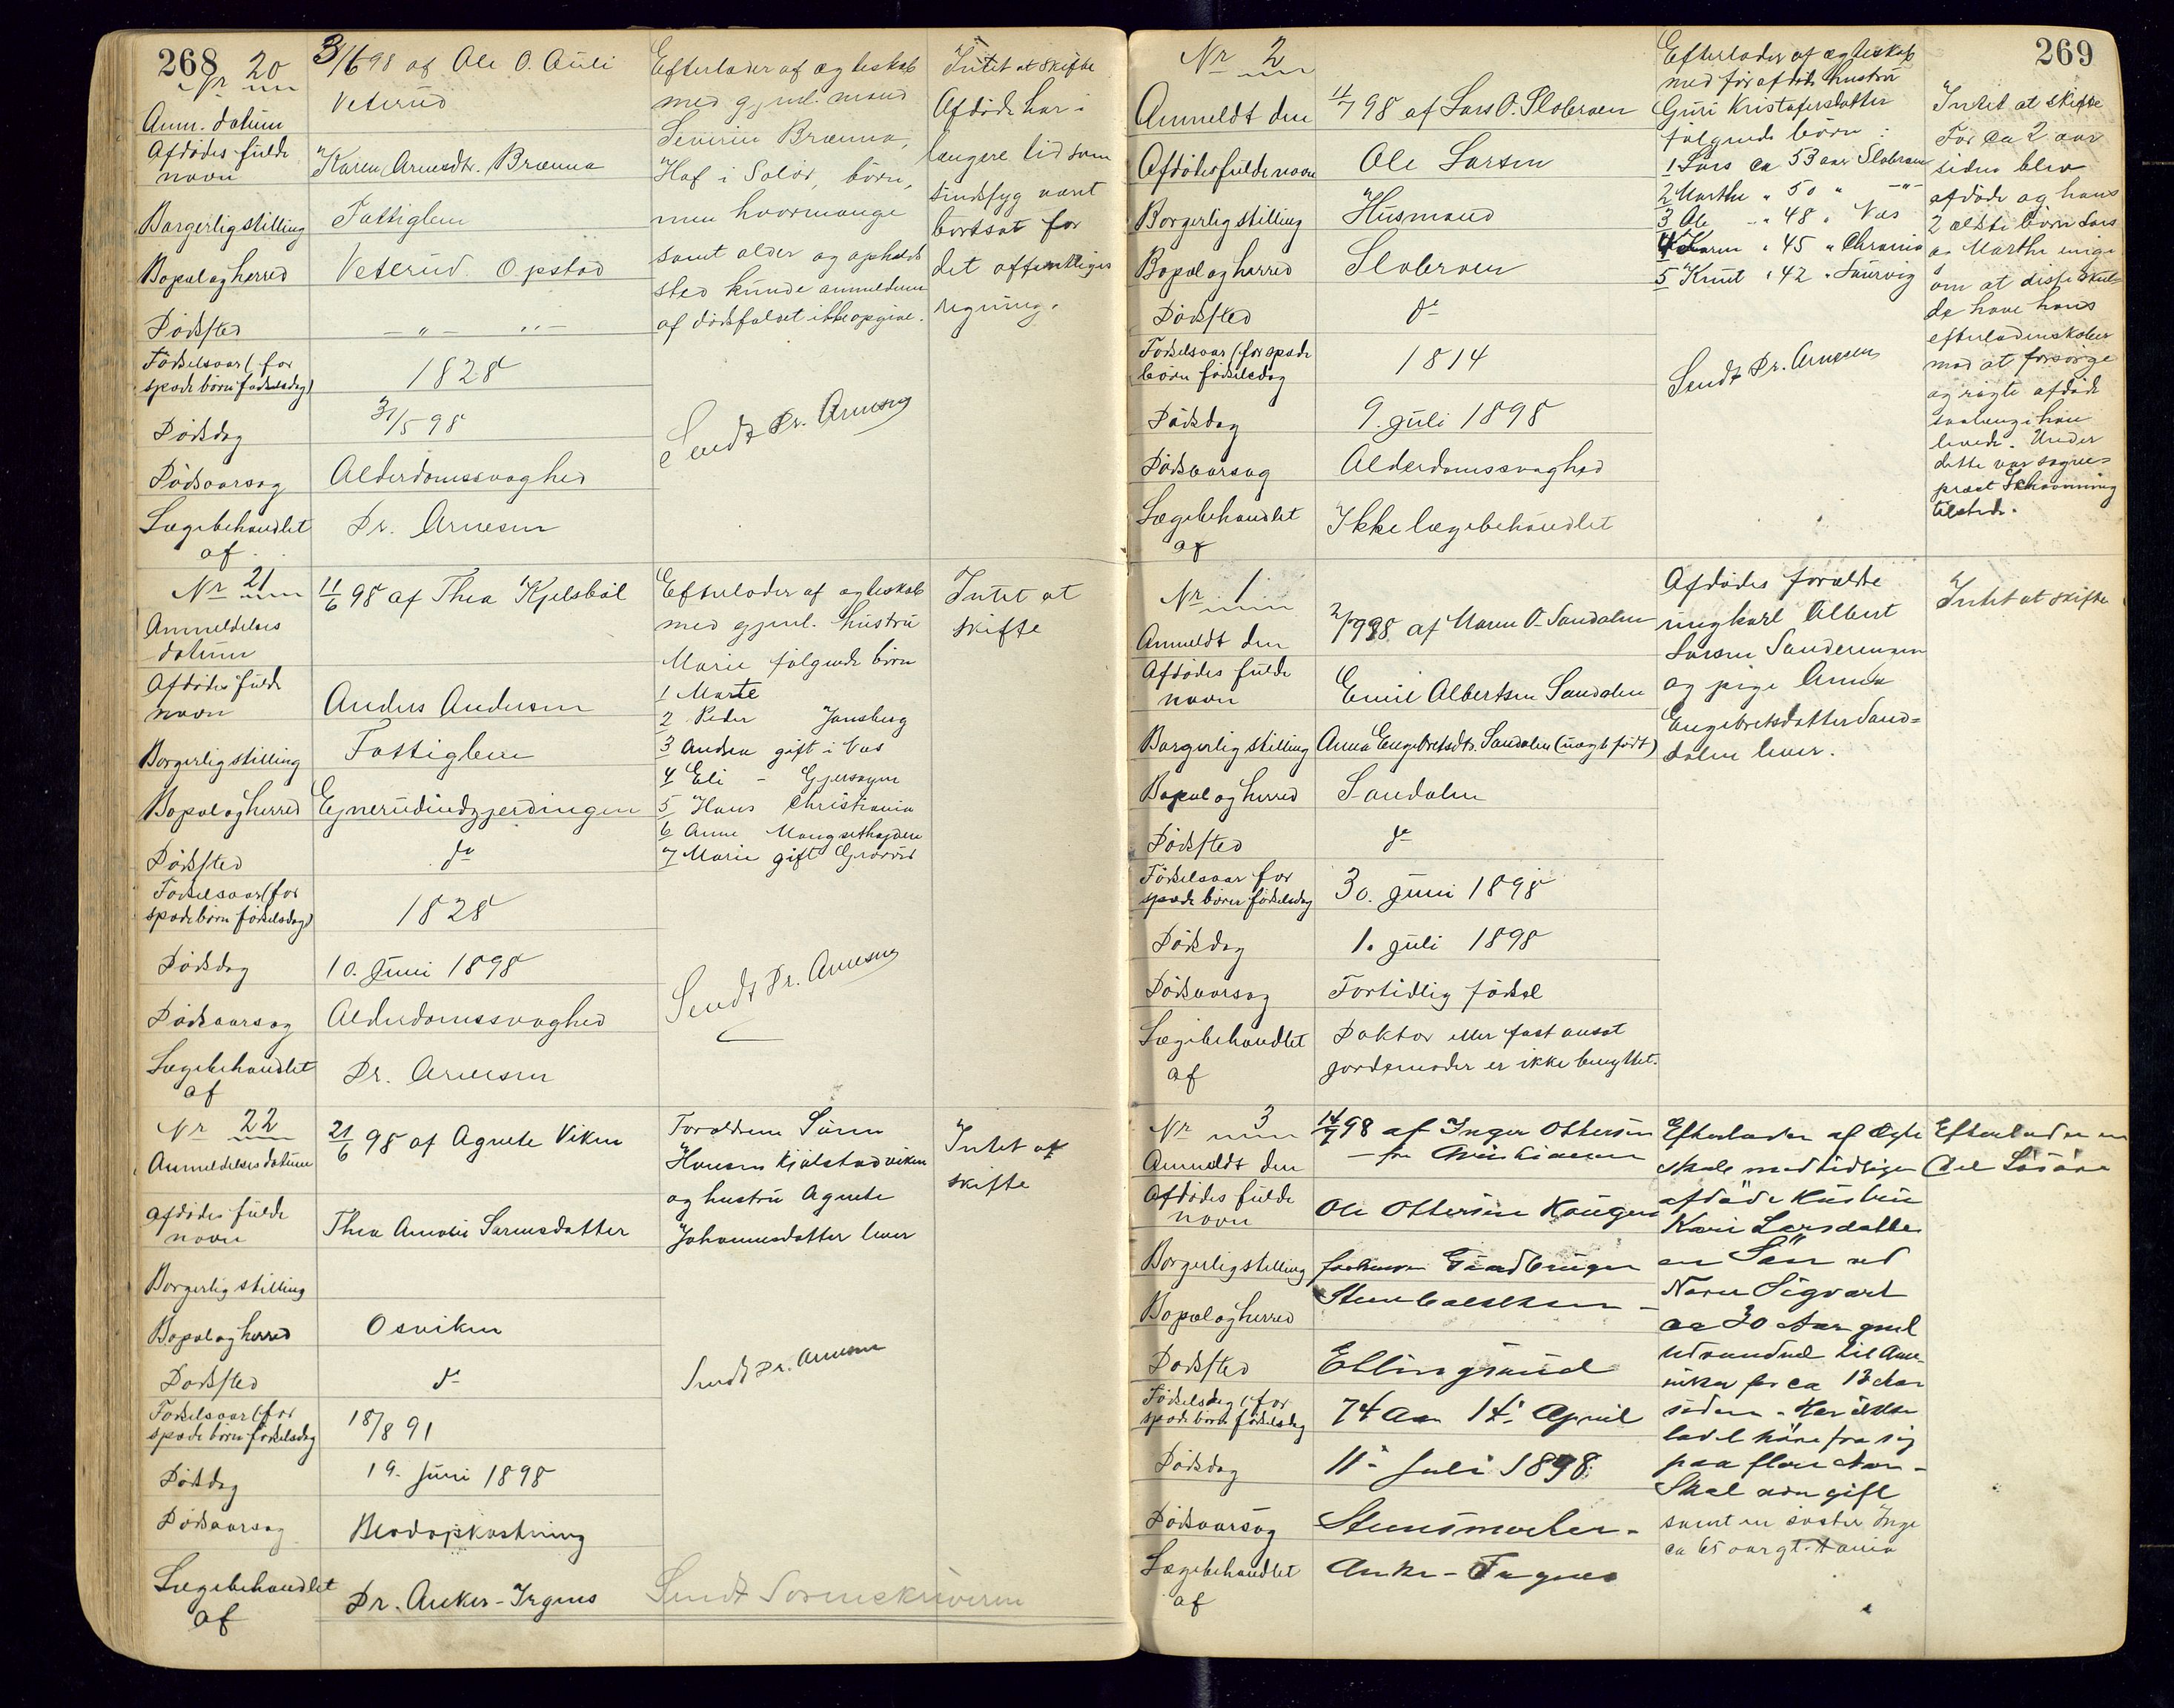 268
Nr 20
Anm. datum
3/6 98 af Ole O. Auli
Veterud
Afdødes fulde
navn
Karen Arnesdtr. Brænna
Borgerlig stilling
Fattiglem
Bopæl og herred
Veterud Opstad
Dødsted
— " — " —
Fødselsaar (for
spæde børn fødselsdag)
1828
Dødsdag
31/5 98
Dødsaarsag
Alderdomssvaghed
Lægebehandlet
af
Dr. Arnesen
Efterlader af ægteskab
med gjenl. mand
Severin Brænna,
Hof i Solør, børn,
men hvormange
samt alder og opholds
sted kunde anmelderen
af dødsfaldet ikke opgive.
Sendt Dr. Arnesen
Intet at skifte
Afdøde har i
længere tid som
sindssyg været
bortsat for
det offentliges
regning.
Nr 21
Anmeldelses
datum
11/6 98 af Thea Kjelsbøl
Afdødes fulde
navn
Anders Andersen
Borgerlig stilling
Fattiglem
Bopæl og herred
Ejnerudindgjerdingen
Dødsted
do
Fødselsaar (for
spæde børn fødselsdag)
1828
Dødsdag
10. Juni 1898
Dødsaarsag
Alderdomssvaghed
Lægebehandlet
af
Dr. Arnesen
Efterlader af ægteskab
med gjenl. hustru
Marie følgende børn
1 Marte
2 Peder Jansberg
3 Andrea gift i Vas
4 Eli - Gjersøyen
5 Hans Christiania
6 Anne Mangsethøgden
7 Marie gift Grorud
Sendt Dr. Arnesen
Intet at
skifte
Nr 22
Anmeldelses datum
21/6 98 af Agnete Viken
Afdødes fulde
navn
Thea Amalie Sørensdatter
Borgerlig stilling
Bopæl og herred
Osviken
Dødsted
do
Fødselsaar (for
spæde børn fødselsdag
18/8 91
Dødsdag
19. Juni 1898
Dødsaarsag
Blodopkastning
Lægebehandlet
af
Dr. Anker-Irgens
Forældrene Sørn
Hansen Kjølstadviken
og hustru Agnete
Johannesdatter lever
Sendt Dr. Arnesen
Sendt Sorenskriveren
Intet at
skifte
269
Nr 2
Anmeldt den
11/7 98 af Lars O. Slobraaen
Afdødes fulde navn
Ole Larsen
Borgerlig stilling
Husmand
Bopæl og herred
Slobraaen
Dødsted
do
Fødselsaar (for spæde
børn fødselsdag
1814
Dødsdag
9. Juli 1898
Dødsaarsag
Alderdomssvaghed
Lægebehandlet
af
Ikke lægebehandlet
Efterlader af ægteskab
med før afdøde hustru
Guri Kristofersdatter
følgende børn:
1 Lars ca 53 aar Slobraaen
2 Marthe " 50 " - " -
3 Ole - " 48 " Vas
4 Karen " 45 " Chrania
5 Knut " 42 " Laurvig
Sendt Dr. Arnesen
Intet at skifte
For ca 2 aar
siden blev
afdøde og hans
2 ælste børn Lars
og Marthe enige
om at disse skul-
de have hans
efterladenskaber
mod at forsørge
og røgte afdøde
saalenge han
levede. Under
dette var sogne-
præst Schiønning
tilstede.
Nr 1
Anmeldt den
2/7 98 af Maren O. Sandalen
Afdødes fulde
navn
Emil Albertsen Sandalen
Borgerlig stilling
Anna Engebretsdtr. Sandalen (uægte født)
Bopæl og herred
Sandalen
Dødsted
do
Fødselsaar for
spæde børn fødselsdag
30. Juni 1898
Dødsdag
1. Juli 1898
Dødsaarsag
Fortidlig fødsel
Lægebehandlet
af
Doktor eller fast ansat
jordemoder er ikke benyttet.
Afdødes forældre
ungkarl Albert
Larsen Sanderengen
og pige Anna
Engebretsdatter Sand-
dalen lever.
Intet at skifte
Nr 3
Anmeldt den
14/7 98 af Inger Ottersen
Afdødes fulde
navn
Ole Ottersen Haugen
Borgerlig stilling
forhenv. Gaardbruger
Bopæl og herred
Dødsted
Ellingsrud
Fødselsdag (for
spæde børn fødselsdag
74 Aar 14. April
Dødsdag
11. Juli 1898
Dødsaarsag
Lægebehandlet
af
Anker-Irgens
Efterlader af Ægte
skab med tidligere
afdøde Hustru
Kari Larsdatter
en Søn ved
Navn Sigvart
ca 30 Aar gml
udvandret til Ame-
rika for ca 13 Aar
siden. Har ikke
ladet høre fra sig
paa flere Aar -
Skal være gift
samt en søster Inge
ca 65 aar gt.
Efterlader en
Del Løsøre